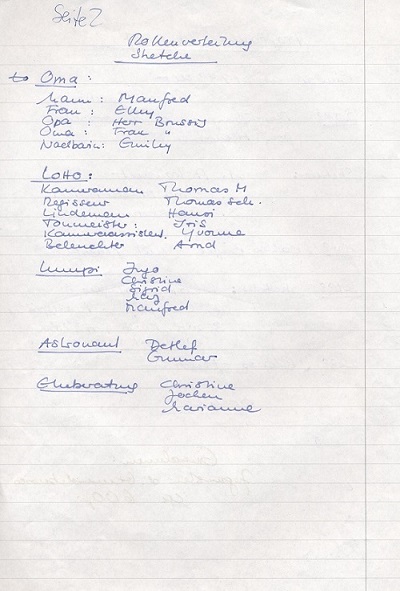 Seite 2
Rollenverteilung
Sketche
Oma :
Mann : Manfred
Frau : Elly
Opa : Herr
Oma : Frau "
Nachbarin : Emily
Lotto :
Kameramann Thomas M
Regisseur Thomas Sch.
Lindemann Hansi
Tonmeister : Iris
Kameraassisten. Yvonne
Beleuchter Arnd
Lumpi Ingo
Christine
Sigrid
Manfred
Astronaut Detlef
Gunnar
Eheberatung Christine
Jochen
Marianne